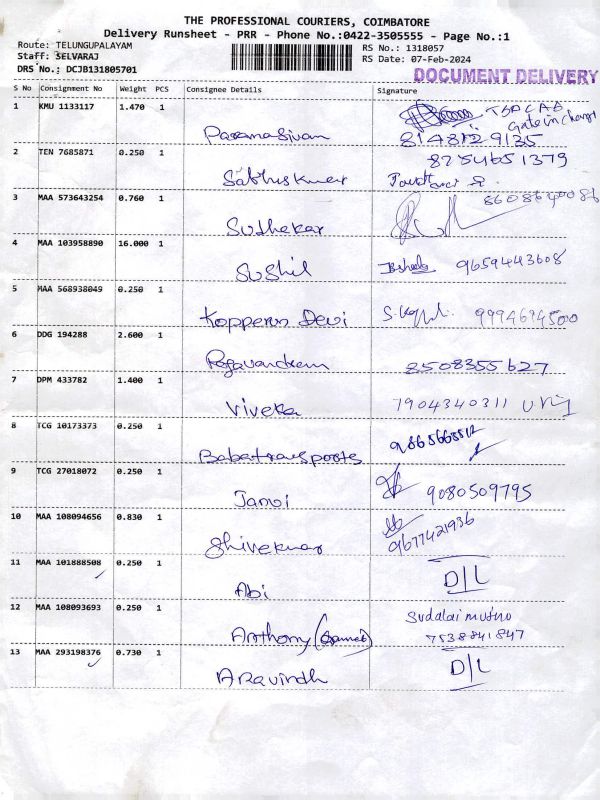 THE PROFESSIONAL COURIERS, COIMBATORE
Delivery Runsheet - PRR - Phone No.:0422-3505555 - Page No.:1
Route: TELUNGUPALAYAM
Staff: SELVARAJ
DRS No.: DCJB131805701
RS No.: 1318057
RS Date: 07-Feb-2024
DOCUMENT DELIVERY
S No Consignment No Weight PCS Consignee Details Signature
1 KMU 1133117 1.470 1
Paramasivam 8148129135
2 TEN 7685871 0.250 1 8254651379
3 MAA 573643254 0.760 1
Sudhekar
4 MAA 103958890 16.000 1
Sushil 9659443608
5 MAA 568938049 0.250 1
Devi 9994694500
6 DDG 194288 2.600 1
8508355627
7 DPM 433782 1.400 1
Viveka 7904340311
8 TCG 10173373 0.250 1
9 TCG 27018072 0.250 1
Janvi 9080509795
10 MAA 108094656 0.830 1
9677421936
11 MAA 101888508 0.250 1
Abi D/L
12 MAA 108093693 0.250 1
Anthony 7538841847
13 MAA 293198376 0.730 1
Aravindh D/L